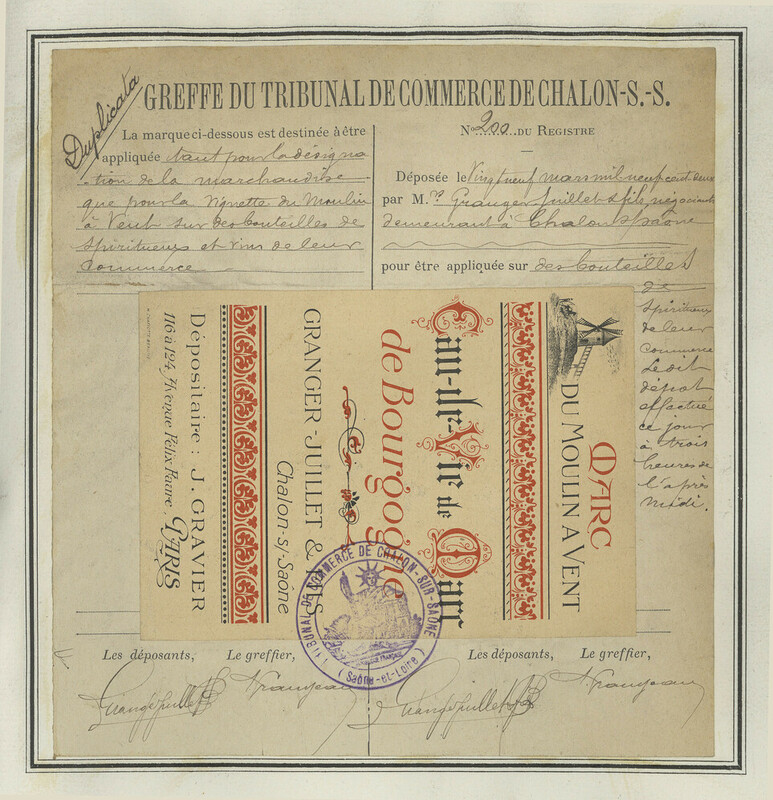 Duplicata
GREFFE DU TRIBUNAL DE COMMERCE DE CHALON-S.-S.
La marque ci-dessous est destinée à être
appliquée tant pour la désigna
tion de la marchandise
que pour la vignette du Moulin
à Vent sur des bouteilles de
Spiritueux et vins de leur
Commerce
No 200 DU REGISTRE
Déposée le Vingt neuf mars mil neuf cent deux
par M.rs Granger Juillet & fils, négociants
demeurant à Chalon s/ Saône
pour être appliquée sur des bouteilles
de
Spiritueux
de leur
Commerce
Le dit
dépôt
effectué
ce jour
à trois
heures de
l'après
midi.
MARC
DU MOULIN A VENT
Eau-de-Vie de Marc
de Bourgogne
GRANGER-JUILLET & FILS
Chalon-s/-Saône
Dépositaire : J. GRAVIER
116 à 124, Félix Faure, PARIS
TRIBUNAL DE COMMERCE DE CHALON-SUR-SAÔNE
(Saône-et-Loire)
Les déposants, Le greffier,
Les déposants, Le greffier,